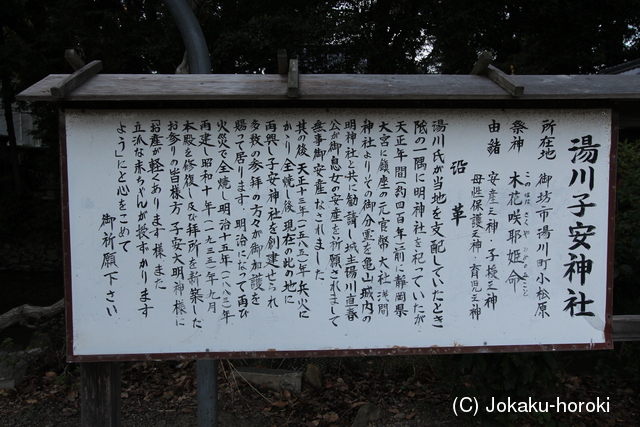 湯川子安神社
所在地 御坊市湯川町小松原
祭神 木花咲耶姫命
このはな さくや ひめ みこと
由緒 安産之神・子授之神
母性保護之神・育児之神
沿革
湯川氏が当地を支配していたとき
邸の一隅に明神社を祀っていたが
天正年間(約四百年)前に静岡県
大宮に鎮座の元官幣大社浅間
神社よりその御分霊を亀山城内の
明神社と共に勧請し城主湯川直春
公が御息女の安産を祈願されまして
無事御安産なされました
其の後 天正十三年(一五八五)年兵火に
かゝり全焼し後 現在の此の地に
再興し子安神社を創建せられ
多数の参拝の方々が御加護を
賜って居ります 明治になって再び
火災で全焼 明治十五年(一八八二)年
再建 昭和十年(一九三五)年九月
本殿を修復し及び拝所を新築した
お参りの皆様方 子安大明神様に
「お産が軽くあります様また
立派な赤ちゃんが授かります
よう」にと心をこめて
御祈願下さい
(C) Jokaku-horoki